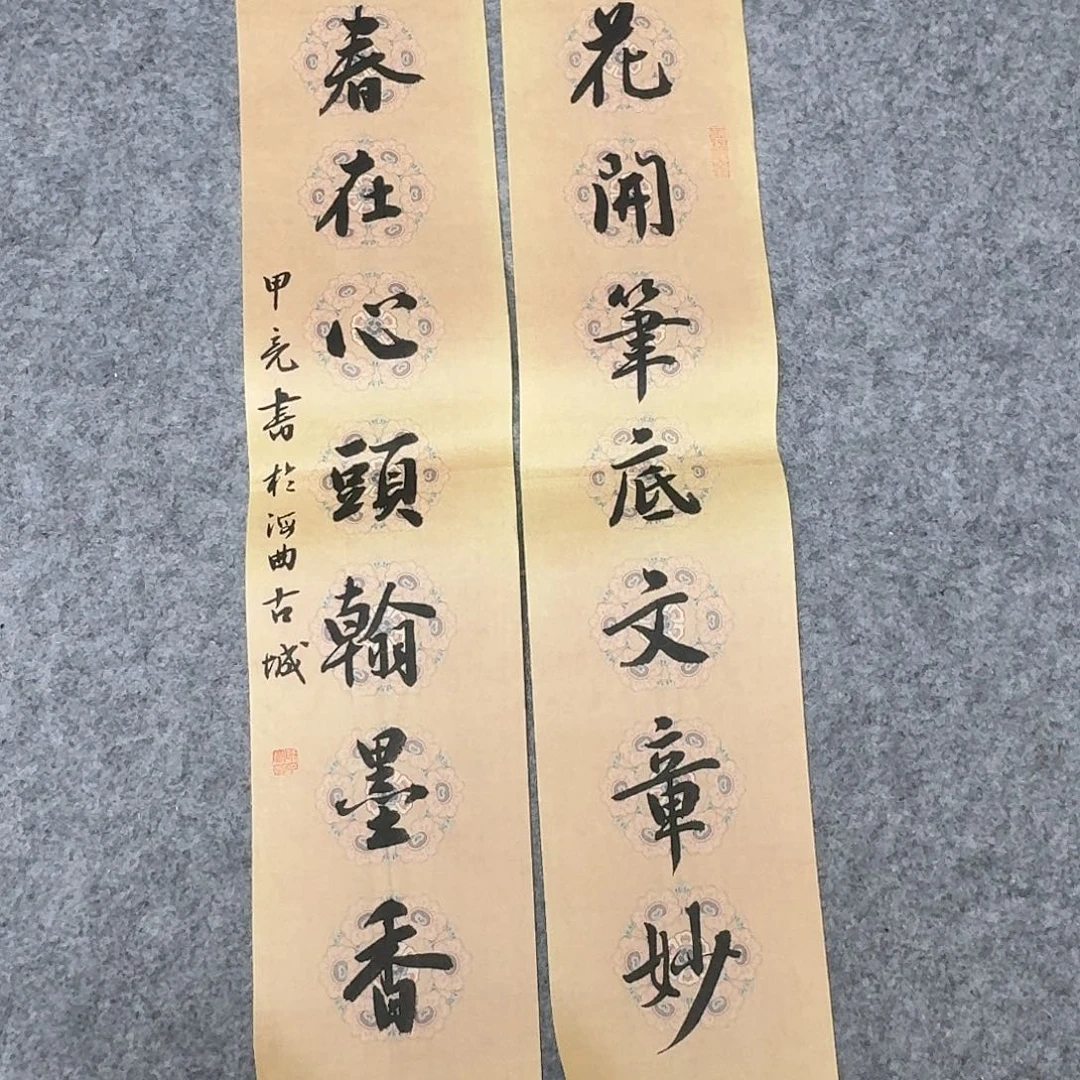 花開筆底文章妙
春在心頭翰墨香
甲亮書於海曲古城